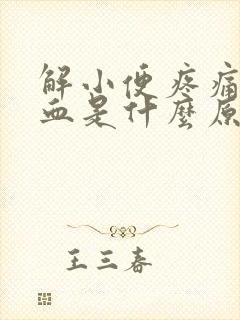 解小便疼痛
血是什麼原
王三春